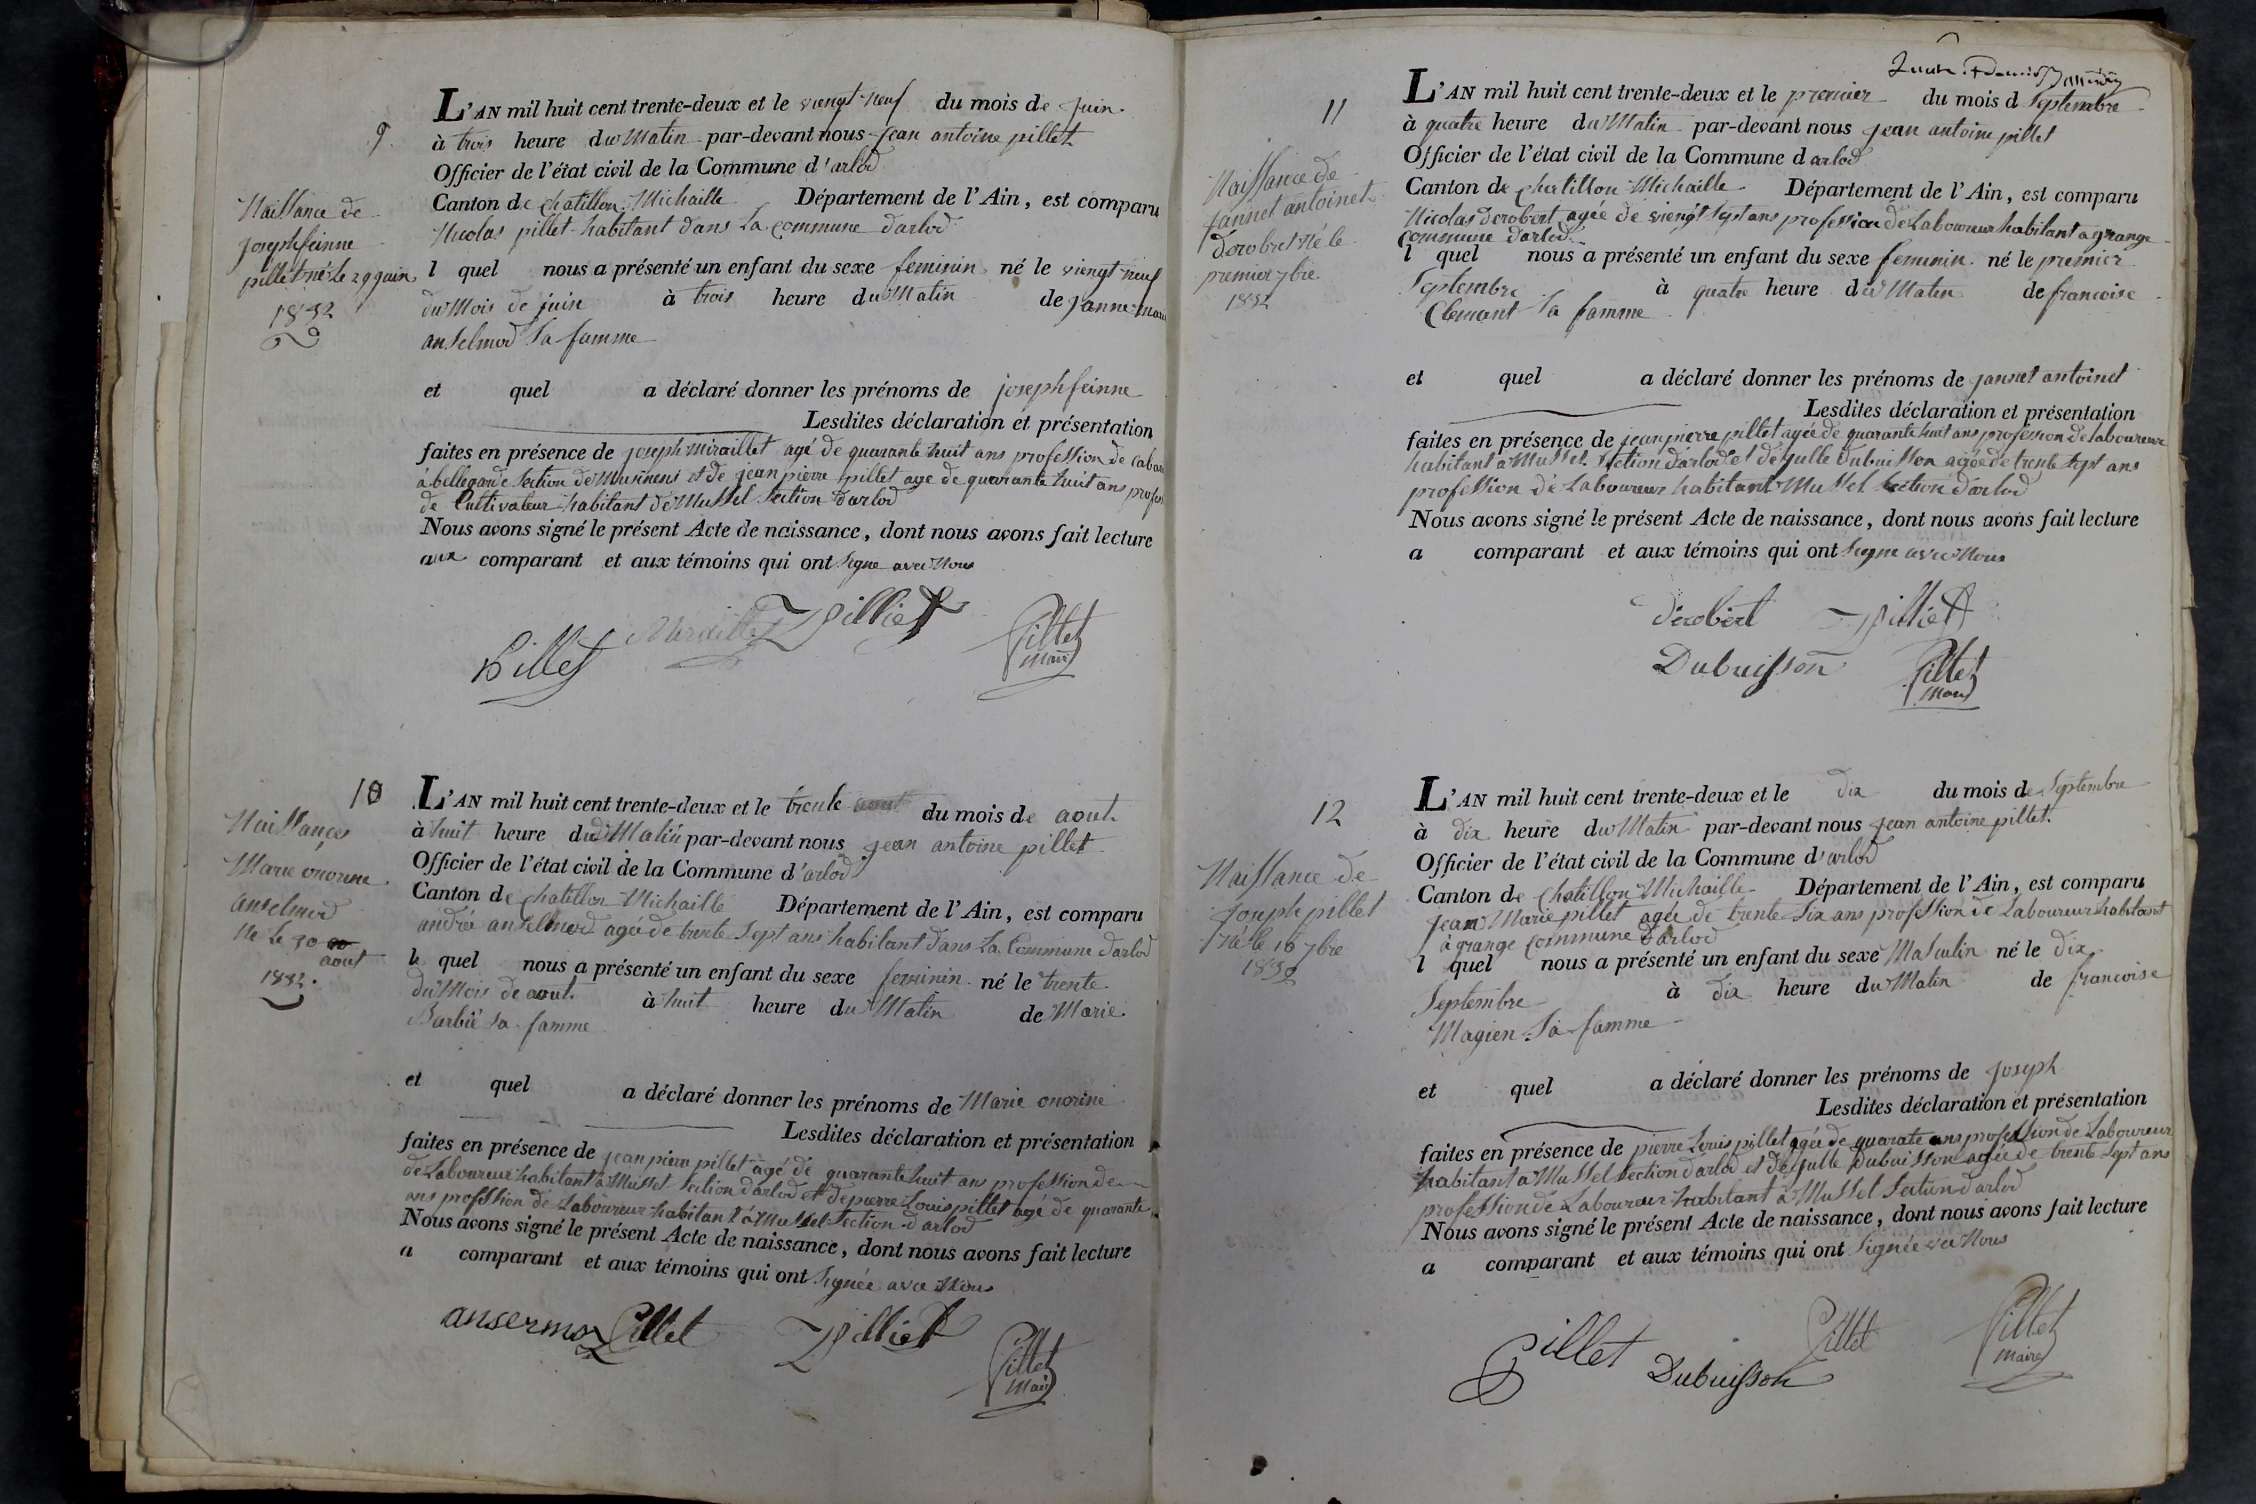 9.
Naissance de
josephfeinne
pillet né Le 29 juin
1832
L'AN mil huit cent trente-deux et le viengt-neuf du mois de juin.
à trois heure du Matin par-devant nous jean antoine pillet
Officier de l'état civil de la Commune d'arlod
Canton de chatillon Michaille Département de l'Ain, est comparu
Nicolas pillet habitant dans La commune darlod
l quel nous a présenté un enfant du sexe feminin né le viengt neuf
du Mois de juin à trois heure du Matin de janne marie
anselmod Sa famme
et quel a déclaré donner les prénoms de josephfeinne
Lesdites déclaration et présentation
faites en présence de joseph Miraillet agé de quarante huit ans profession de Cabare
à bellegarde Section de Musinens et de jean pierre pillet age de quarante huit ans profes
de Cultivateur habitant de Mussel Section Darlod
Nous avons signé le présent Acte de naissance, dont nous avons fait lecture
aux comparant et aux témoins qui ont Signe avec Nous
Miraillet Pilliet
Pillet Pillet
maire
10
Naissance
Marie onorine
anselmod
Né Le 30
aout
1832.
L'AN mil huit cent trente-deux et le trente aout du mois de aout.
à huit heure du Matin par-devant nous jean antoine pillet
Officier de l'état civil de la Commune d'arlod
Canton de chatillon Michaille Département de l'Ain, est comparu
andré anselmod agé de trente Sept ans habitant dans La Commune darlod
le quel nous a présenté un enfant du sexe feminin né le trente
du Mois de aout. à huit heure du Matin de Marie
Barbié sa famme
et quel a déclaré donner les prénoms de Marie onorine
Lesdites déclaration et présentation
faites en présence de jean pierre pillet agé de quarante huit ans profession de
de Laboureur habitant à Mussel Section darlod et de pierre Louis pillet agé de quarante
ans profession de Laboureur habitant à Mussel Section darlod
Nous avons signé le présent Acte de naissance, dont nous avons fait lecture
a comparant et aux témoins qui ont Signée avec Nous
ansermoz Pillet Pilliet Pillet
maire
11
Naissance de
jannet antoinet
Derobert Né le
premier 7bre
1832
L'AN mil huit cent trente-deux et le premier du mois d Septembre
à quatre heure du Matin par-devant nous jean antoine pillet
Officier de l'état civil de la Commune d arlod
Canton de chatillon Michaille Département de l'Ain, est comparu
Nicolas derobert agée de viengt Sept ans profession de Laboureur habitant a grange
commune darlod
l quel nous a présenté un enfant du sexe feminin né le premier
Septembre à quatre heure du Matin de francoise
Clemant Sa famme
et quel a déclaré donner les prénoms de jannet antoinet
Lesdites déclaration et présentation
faites en présence de jean pierre pillet agée de quarante huit ans profession de laboureur
habitant a Mussel Section darlod et de julle Dubuisson agée de trente Sept ans
profession de Laboureur habitant Mussel Section darlod
Nous avons signé le présent Acte de naissance, dont nous avons fait lecture
a comparant et aux témoins qui ont Signe avec Nous
Derobert Pilliet
Dubuisson Pillet
maire
12
Naissance de
Joseph pillet
Né le 16 7bre
1832
L'AN mil huit cent trente-deux et le dix du mois de Septembre
à dix heure du Matin par-devant nous jean antoine pillet.
Officier de l'état civil de la Commune d'arlod
Canton de chatillon Michaille Département de l'Ain, est comparu
jean Marie pillet agée de trente Six ans profession de Laboureur habitant
à grange Commune darlod
l quel nous a présenté un enfant du sexe Masculin né le dix
Septembre à dix heure du Matin de francoise
Magien Sa famme
et quel a déclaré donner les prénoms de joseph
Lesdites déclaration et présentation
faites en présence de pierre Louis pillet agée de quarate ans profession de Laboureur
habitant a Mussel Section darlod et de julle Dubuisson agée de trente Sept ans
profession de Laboureur habitant a Mussel Section darlod
Nous avons signé le présent Acte de naissance, dont nous avons fait lecture
a comparant et aux témoins qui ont Signée avec Nous
Pillet Dubuisson Pillet Pillet
maire